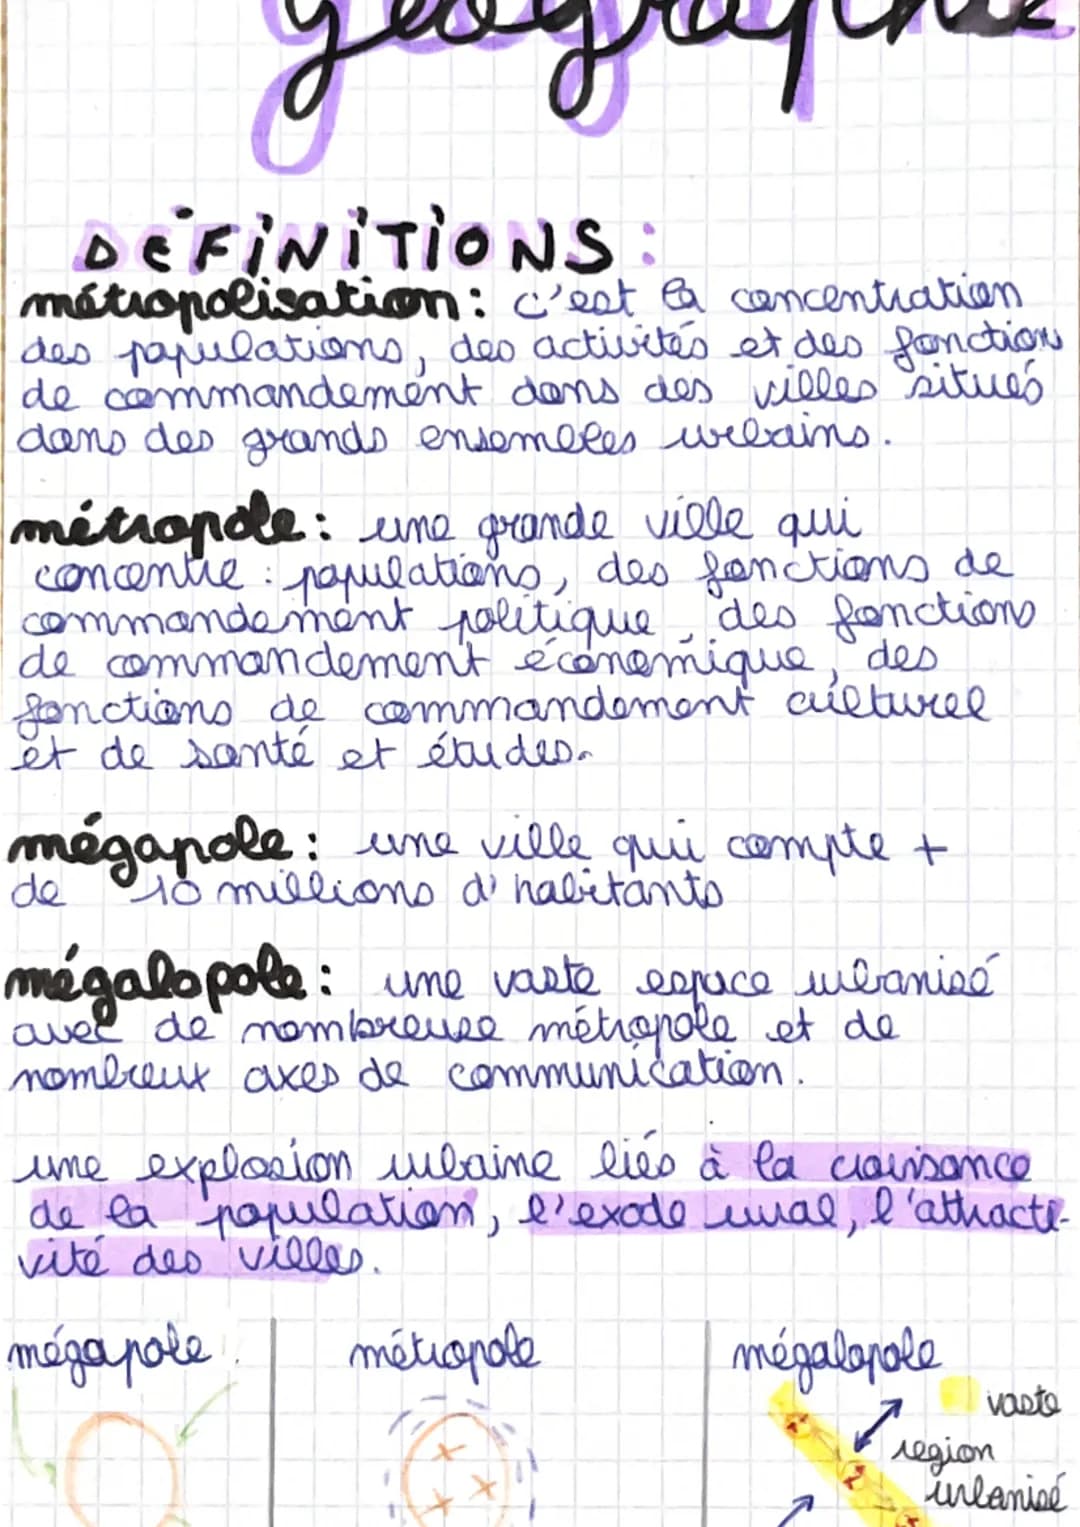 géographie
DÉFINITIONS :
métropolisation : c'est la concentration
des populations, des activités et des fonction
de commandement dans des villes situés
dans des grands ensembles urbains.
métropole : une grande ville qui
concentre : populations, des fonctions de
commandement politique, des fonctions
de commandement économique, des
fonctions de commandement culturel
et de santé et études.
mégapole : une ville qui compte +
de 10 millions d'habitants
mégalopole : une vaste espace urbanisé
avec de nombreuse métropole et de
nombreux axes de communication.
une explosion urbaine liés à la croissance
de la population, l'exode rural, l'attracti-
vité des villes.
mégapole
métropole
mégalopole
vaste
region
urbanisé